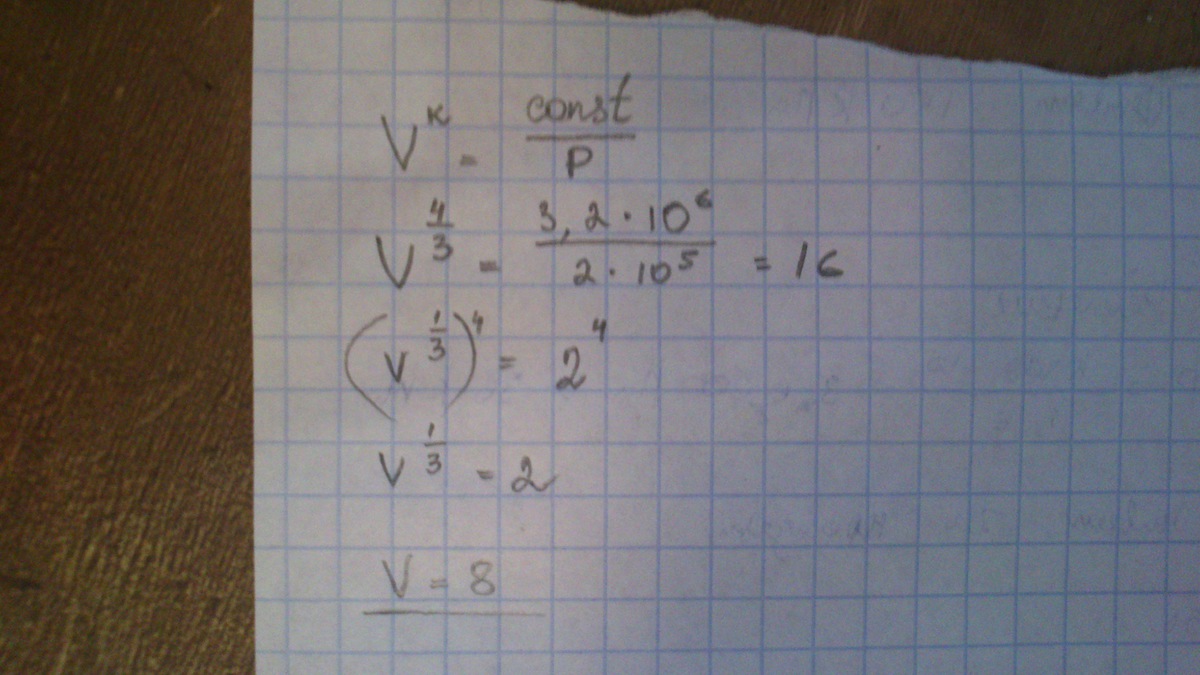 V^к = const / P
V^(4/3) = 3,2 · 10^6 / 2 · 10^5 = 16
(V^(1/3))^4 = 2^4
V^(1/3) = 2
V = 8